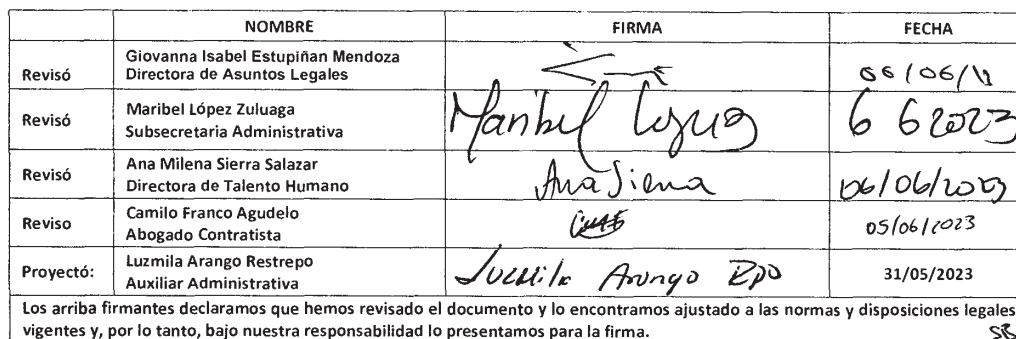 NOMBRE FIRMA FECHA
Revisó Giovanna Isabel Estupiñan Mendoza
Directora de Asuntos Legales 06/06/
Revisó Maribel López Zuluaga Maribel
Subsecretaria Administrativa 6 6 2023
Revisó Ana Milena Sierra Salazar
Directora de Talento Humano Ana Sierra 06/06/2023
Reviso Camilo Franco Agudelo
Abogado Contratista 05/06/2023
Proyectó: Luzmila Arango Restrepo
Auxiliar Administrativa Luzmila Arango Rpo 31/05/2023
Los arriba firmantes declaramos que hemos revisado el documento y lo encontramos ajustado a las normas y disposiciones legales
vigentes y, por lo tanto, bajo nuestra responsabilidad lo presentamos para la firma.